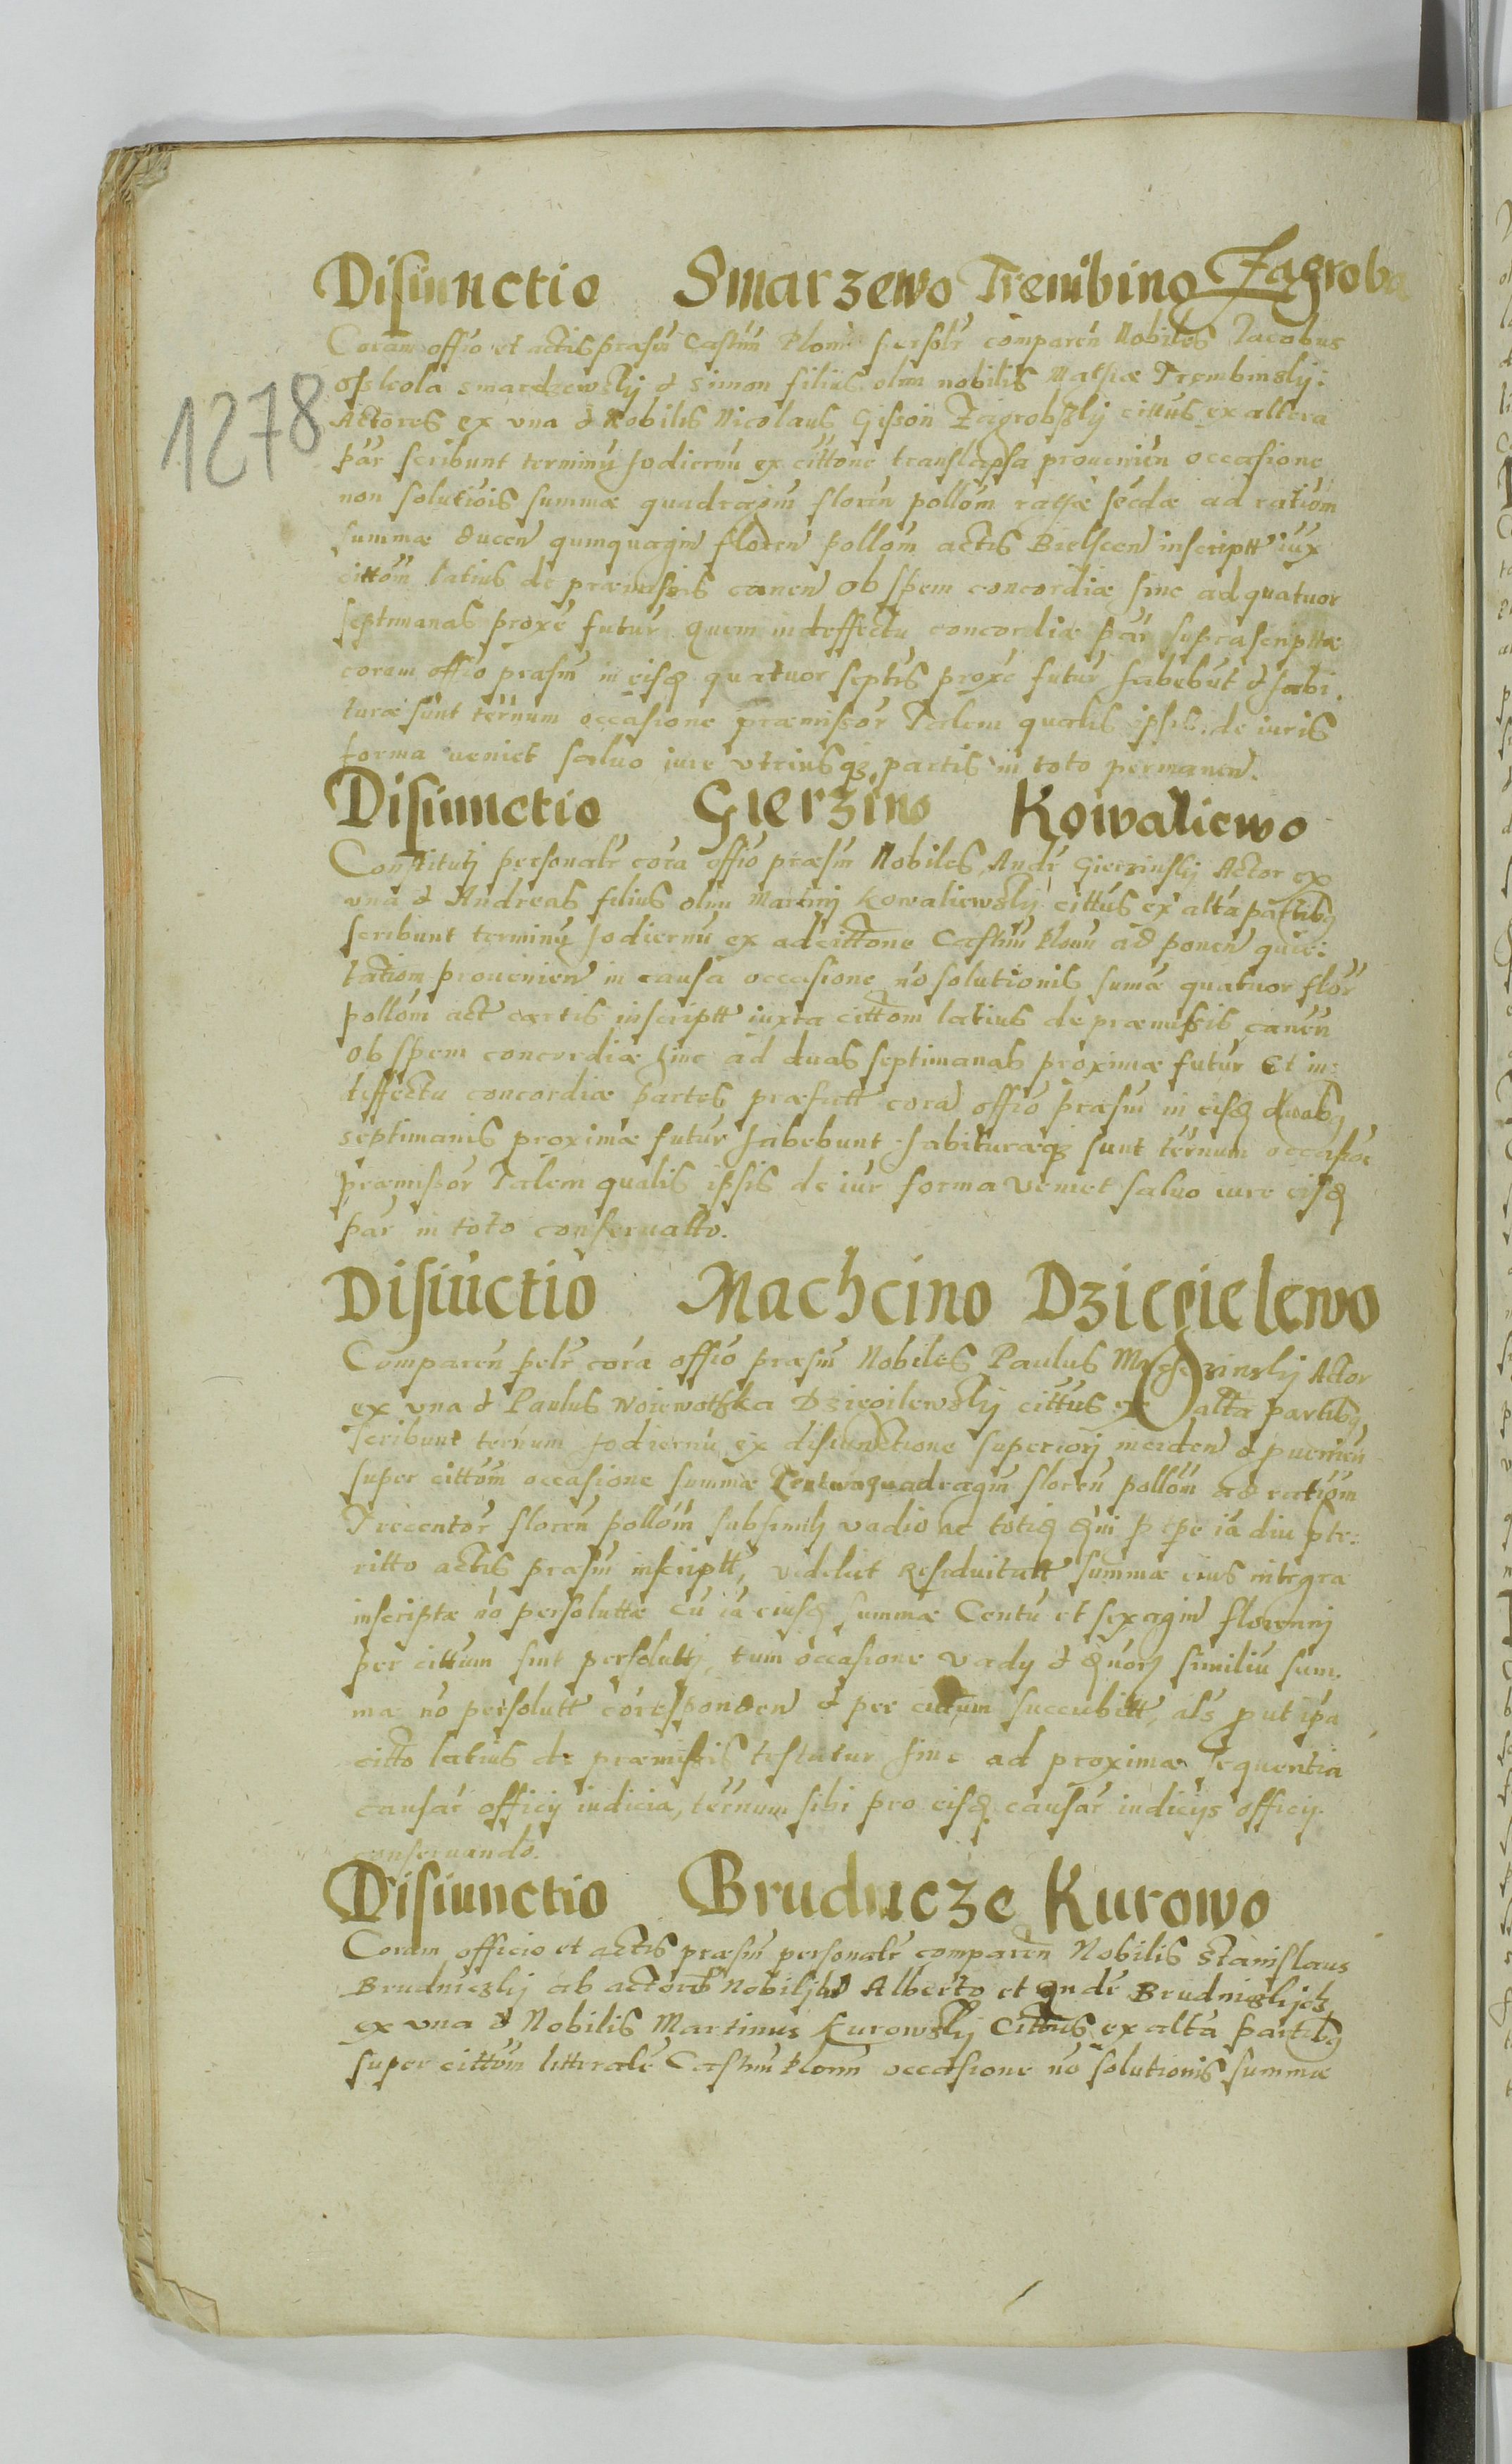 Disiunctio Smarzewo Trembino Zagroba
Coram offio et actis præsm̄ Castrm̄ Plom̄ persolr̄ comparen̄ Nobiles Jacobus
smardzewskij & simon filius olim nobilis Mathiæ Trembinskij:
1278
Actores ex vna & Nobilis Nicolaus Zagrobskij cittus ex altera
par̄ scribunt terminū hodiernū ex cittone translapsa prouenien̄ occasione
non solutiois summæ quadragin̄ floren̄ pollom̄ rathæ secdæ ad ratiom̄
summæ ducen̄ quinquagin̄ floren̄ pollom̄ actis Bielscen̄ inscriptt iux
cittom̄ latius de præmissis canen̄ Ob spem concordiæ hinc ad quatuor
septimanas proxe futur̄ quem in deffectu concordiæ par̄ suprascripttæ
coram offio præsm̄ in eisd quatuor septis proxe futur̄ habebūt & habi.
turæ sunt ternum occasione præmissor̄ Talem qualis ipsis de iuris
forma veniet saluo iure vtriusq3 partis in toto permanen̄.
Disiunctio Gierzino Kowaliewo
Constitutj personalr̄ corā offio præsm̄ Nobiles Andr̄ Gierzinskij Actor ex
vna & Andreas filius olim Martinj Kowaliewskij cittus ex altā partibq
scribunt terminū hodiernū ex adcittone Castrm̄ Plom̄ ad ponen̄ quie:
tatiom prouenien̄ in causa occasione nō solutionis sumæ quatuor flor̄
pollom̄ act certis inscriptt iuxta cittom̄ latius de præmissis canen̄
Ob spem concordiæ hinc ad duas septimanas proximæ futur̄ Et in:
deffectu concordiæ partes præfatt corā offio præsm̄ in eisd duabq
septimanis proximæ futur̄ habebunt habituræq3 sunt ternum occasioe
præmissor̄ Talem qualis ipsis de iur̄ forma veniet saluo iure eisd
par̄ in toto conseruatto.
Disiūctio Machcino Dziegielewo
Comparen̄ pslr̄ corā offio præsm̄ Nobiles Paulus Machczinskij Actor
ex vna & Paulus Woiewotzka Dziegilewskij cittus ex altā partibq
scribunt ternum hodiernū ex disiunctione superiorj inciden̄ & puenien̄
super cittom̄ occasione summæ quadragin̄ floren̄ pollom̄ ad ratiom̄
Trecentor̄ floren̄ pollom̄ subsimilj vadio ac totid iā diu pte:
ritto actis præsm̄ inscriptt, videlict Residuitatt summæ eius integra
inscriptæ nō persoluttæ cū iā eiusd summæ Centū et sexagin̄ florenij
per cittum sint persoluttj, tum occasione vadij & similiū sum.
mæ nō persolutt corresponden̄ & per cittum succubitt, als put ipa
citto latius de præmissis testatur hinc ad proximæ sequentia
causar̄ officij iudicia, ternum sibi pro eisd causar̄ iudicijs officij
conseruando.
Disiunctio Brudnicze Kurowo
Coram officio et actis præsm̄ personalr̄ comparen̄ Nobilis Stanislaus
Brudniczkij ab actorib Nobilib Alberto et Andr̄ Brudniczkijch
ex vna & Nobilis Martinus Kurowskij Cittus ex altā partibq
super cittom̄ litteralē Castrm̄ Plom̄ occasione nō solutionis summæ